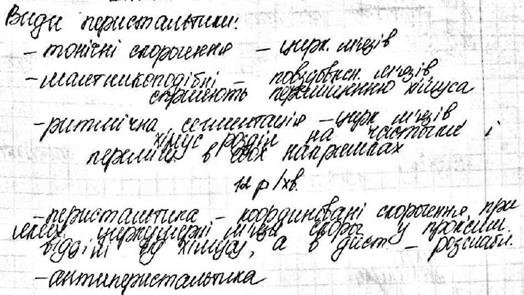 Види перистальтики:
- тонічні скорочення - цирк. м'язів
- маятникоподібні - повздовжн. м'язів
сприяють переміщенню хімуса
- ритмічна сегментація - цирк м'язів
хімус розділ на частини і
переміщ в обох напрямках
12 р/хв.
- перистальтика - координовані скорочення при
яких циркулярні м'язи скороч у проксим
відділі від хімусу, а в дист - розслабл.
- антиперистальтика